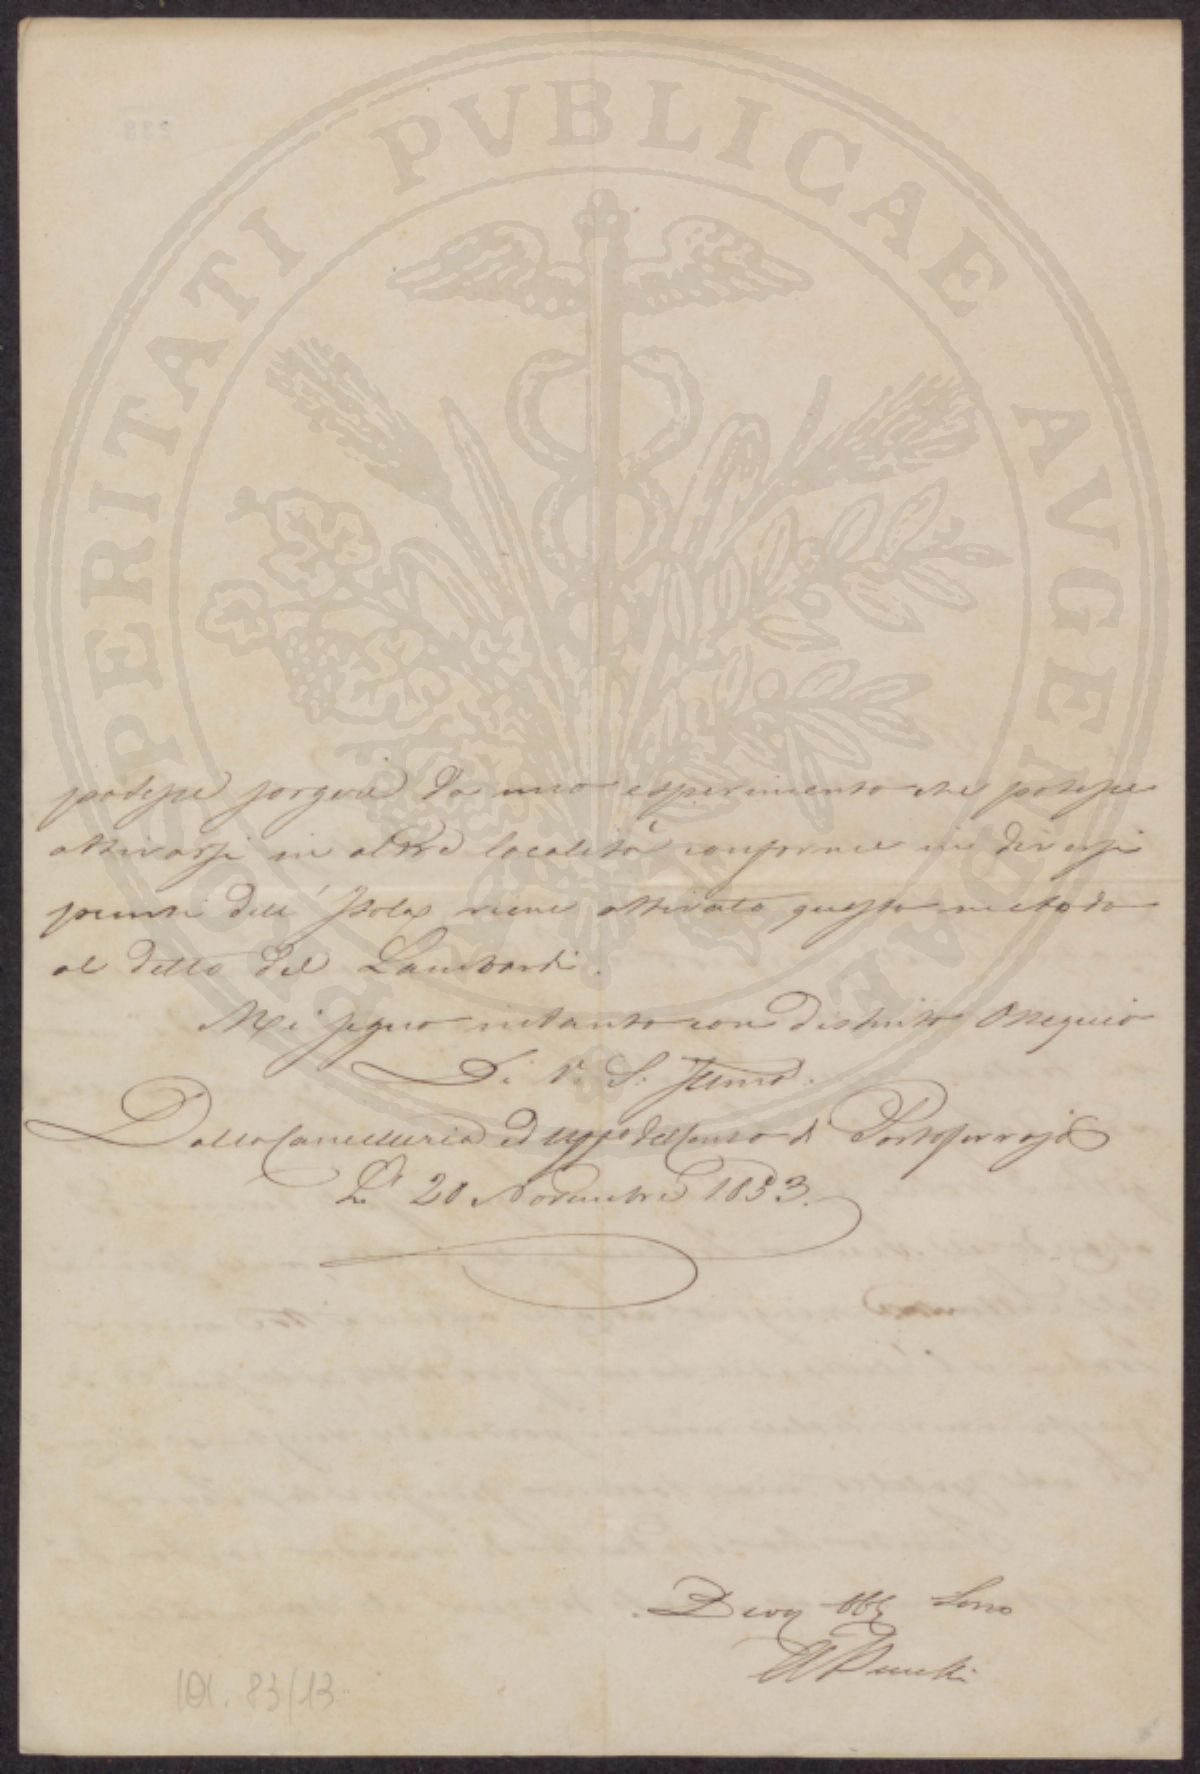 PROSPERITATI PVBLICAE AVGENDAE
potesse sorgere da uno esperimento che potesse
attivarsi in altre località conforme in diversi
punti dell' Isola viene attivato questo metodo
al detto del Lambardi.
Mi segno intanto con distinto Ossequio
Di V. S. Illma.
Dalla Cancelleria ed Uffo del Censo di Portoferrajo
Li 20 Novembre 1853.
Devg Obbg Servo
101. 83/13